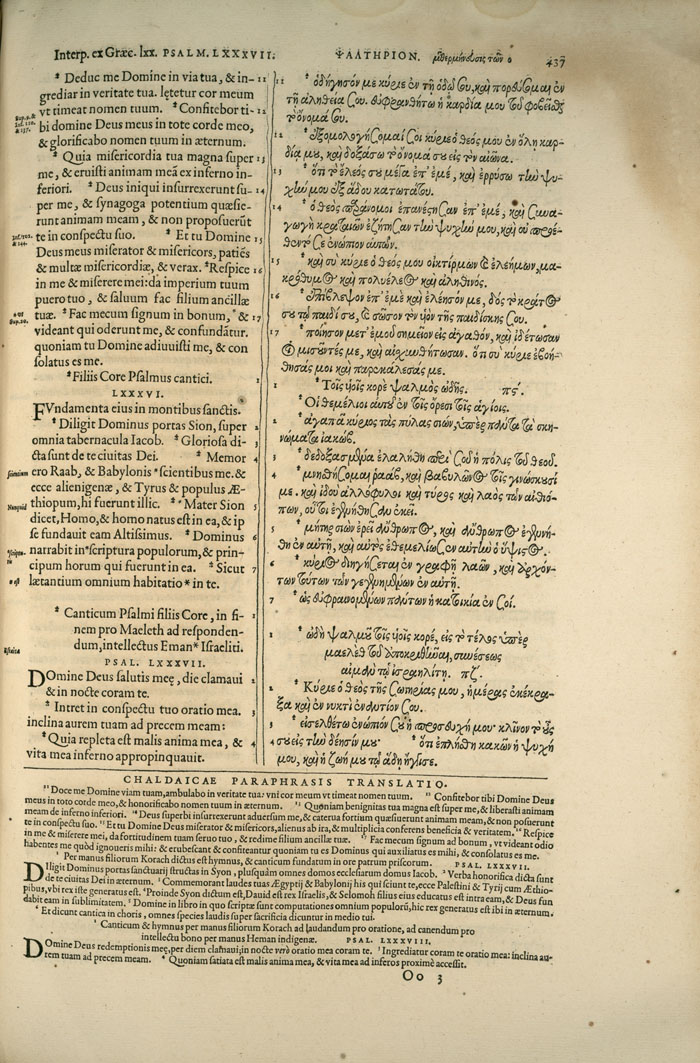 Interp. ex Græc. lxx. PSALM. LXXXVII.
* Deduc me Domine in via tua, & in- 11
grediar in veritate tua. lętetur cor meum
vt timeat nomen tuum. * Confitebor ti- 12
bi domine Deus meus in tote corde meo,
& glorificabo nomen tuum in æternum.
* Quia misericordia tua magna super 13
me, & eruisti animam meā ex inferno in-
feriori. * Deus iniqui insurrexerunt su- 14
per me, & synagoga potentium quæsie-
runt animam meam, & non proposuerūt
te in conspectu suo. * Et tu Domine 15
Deus meus miserator & misericors, patiēs
& multæ misericordiæ, & verax. * Respice 16
in me & miserere mei: da imperium tuum
puero tuo, & saluum fac filium ancillæ
tuæ. * Fac mecum signum in bonum, * & 17
videant qui oderunt me, & confundātur.
quoniam tu Domine adiuuisti me, & con
solatus es me.
* Filiis Core Psalmus cantici. 1
LXXXVI.
FVndamenta eius in montibus sanctis.
* Diligit Dominus portas Sion, super 2
omnia tabernacula Iacob. * Gloriosa di- 3
cta sunt de te ciuitas Dei. * Memor 4
ero Raab, & Babylonis * scientibus me. &
ecce alienigenæ, & Tyrus & populus Æ-
thiopum, hi fuerunt illic. * * Mater Sion 5
dicet, Homo, & homo natus est in ea, & ip
se fundauit eam Altissimus. * Dominus 6
narrabit in * scriptura populorum, & prin-
cipum horum qui fuerunt in ea. * Sicut 7
lætantium omnium habitatio * in te.
* Canticum Psalmi filiis Core, in fi- 1
nem pro Maeleth ad responden-
dum, intellectus Eman * Israeliti.
PSAL. LXXXVII.
DOmine Deus salutis meę, die clamaui 2
& in nocte coram te.
* Intret in conspectu tuo oratio mea. 3
inclina aurem tuam ad precem meam:
* Quia repleta est malis anima mea, & 4
vita mea inferno appropinquauit.
ΨΑΛΤΗΡΙΟΝ. 437
11 * ὁδήγησόν με κύριε ἐν τῇ ὁδῷ σου, καὶ πορεύσομαι ἐν
τῇ ἀληθείᾳ σου. εὐφρανθήτω ἡ καρδία μου τοῦ φοβεῖσθαι
τὸ ὄνομά σου.
12 * ἐξομολογήσομαί σοι κύριε ὁ θεός μου ἐν ὅλῃ καρ-
δίᾳ μου, καὶ δοξάσω τὸ ὄνομά σου εἰς τὸν αἰῶνα.
13 * ὅτι τὸ ἔλεός σου μέγα ἐπ' ἐμέ, καὶ ἐρρύσω τὴν ψυ-
χήν μου ἐξ ᾅδου κατωτάτου.
14 * ὁ θεὸς παράνομοι ἐπανέστησαν ἐπ' ἐμέ, καὶ συνα-
γωγὴ κραταιῶν ἐζήτησαν τὴν ψυχήν μου, καὶ οὐ προέ-
θεντό σε ἐνώπιον αὐτῶν.
15 * καὶ σὺ κύριε ὁ θεός μου οἰκτίρμων & ἐλεήμων, μα-
κρόθυμος καὶ πολυέλεος καὶ ἀληθινός.
16 * ἐπίβλεψον ἐπ' ἐμὲ καὶ ἐλέησόν με, δὸς τὸ κράτος
σου τῷ παιδί σου, & σῶσον τὸν υἱὸν τῆς παιδίσκης σου.
17 * ποίησον μετ' ἐμοῦ σημεῖον εἰς ἀγαθόν, καὶ ἰδέτωσαν
οἱ μισοῦντές με, καὶ αἰσχυνθήτωσαν. ὅτι σὺ κύριε ἐβοή-
θησάς μοι καὶ παρεκάλεσάς με.
1 * Τοῖς υἱοῖς κορὲ ψαλμὸς ᾠδῆς. πϛ'.
* Οἱ θεμέλιοι αὐτοῦ ἐν τοῖς ὄρεσι τοῖς ἁγίοις.
2 * ἀγαπᾷ κύριος τὰς πύλας σιών, ὑπὲρ πάντα τὰ σκη-
νώματα ἰακώβ.
3 * δεδοξασμένα ἐλαλήθη περὶ σοῦ ἡ πόλις τοῦ θεοῦ.
4 * μνησθήσομαι ῥαάβ, καὶ βαβυλῶνος τοῖς γινώσκουσί
με. καὶ ἰδοὺ ἀλλόφυλοι καὶ τύρος καὶ λαὸς τῶν αἰθιό-
πων, οὗτοι ἐγενήθησαν ἐκεῖ.
5 * μήτηρ σιὼν ἐρεῖ ἄνθρωπος, καὶ ἄνθρωπος ἐγενή-
θη ἐν αὐτῇ, καὶ αὐτὸς ἐθεμελίωσεν αὐτὴν ὁ ὕψιστος.
6 * κύριος διηγήσεται ἐν γραφῇ λαῶν, καὶ ἀρχόν-
των τούτων τῶν γεγενημένων ἐν αὐτῇ.
7 * ὡς εὐφραινομένων πάντων ἡ κατοικία ἐν σοί.
1 * ᾠδὴ ψαλμοῦ τοῖς υἱοῖς κορέ, εἰς τὸ τέλος ὑπὲρ
μαελὲθ τοῦ ἀποκριθῆναι, συνέσεως
αἰμὰν τῷ ἰσραηλίτῃ. πζ'.
2 * Κύριε ὁ θεὸς τῆς σωτηρίας μου, ἡμέρας ἐκέκρα-
ξα καὶ ἐν νυκτὶ ἐναντίον σου.
3 * εἰσελθέτω ἐνώπιόν σου ἡ προσευχή μου· κλῖνον τὸ οὖς
4 σου εἰς τὴν δέησίν μου * ὅτι ἐπλήσθη κακῶν ἡ ψυχή
μου, καὶ ἡ ζωή μου τῷ ᾅδῃ ἤγγισε.
CHALDAICAE PARAPHRASIS TRANSLATIO.
11 Doce me Domine viam tuam, ambulabo in veritate tua: vni cor meum vt timeat nomen tuum. 12 Confitebor tibi Domine Deus
meus in toto corde meo, & honorificabo nomen tuum in æternum. 13 Quoniam benignitas tua magna est super me, & liberasti animam
meam de inferno inferiori. 14 Deus superbi insurrexerunt aduersum me, & caterua fortium quæsiuerunt animam meam, & non posuerunt
te in conspectu suo. 15 Et tu Domine Deus miserator & misericors, alienus ab ira, & multiplicia conferens beneficia & veritatem. 16 Respice
in me & miserere mei, da fortitudinem tuam seruo tuo, & redime filium ancillæ tuæ. 17 Fac mecum signum ad bonum, vt videant odio
habentes me quòd ignoueris mihi: & erubescant & confiteantur quoniam tu es Dominus qui auxiliatus es mihi, & consolatus es me.
1 Per manus filiorum Korach dictus est hymnus, & canticum fundatum in ore patrum priscorum. PSAL. LXXXVII.
DIligit Dominus portas sanctuarij structas in Syon, plusquàm omnes domos ecclesiarum domus Iacob. 3 Verba honorifica dicta sunt
de te ciuitas Dei in æternum. 4 Commemorant laudes tuas Ægyptij & Babylonij his qui sciunt te, ecce Palestini & Tyrij cum Æthio-
pibus, vbi rex iste generatus est. 5 Proinde Syon dictum est, Dauid est rex Israelis, & Selomoh filius eius educatus est intra eam, & Deus fun
dabit eam in sublimitatem. 6 Domine in libro in quo scriptæ sunt computationes omnium populorū, hic rex generatus est ibi in æternum.
7 Et dicunt cantica in choris, omnes species laudis super sacrificia dicuntur in medio tui.
1 Canticum & hymnus per manus filiorum Korach ad laudandum pro oratione, ad canendum pro
intellectu bono per manus Heman indigenæ. PSAL. LXXXVIII.
DOmine Deus redemptionis meę, per diem clamaui, in nocte verò oratio mea coram te. 3 Ingrediatur coram te oratio mea: inclina au-
rem tuam ad precem meam. 4 Quoniam satiata est malis anima mea, & vita mea ad inferos proximè accessit.
Oo 3